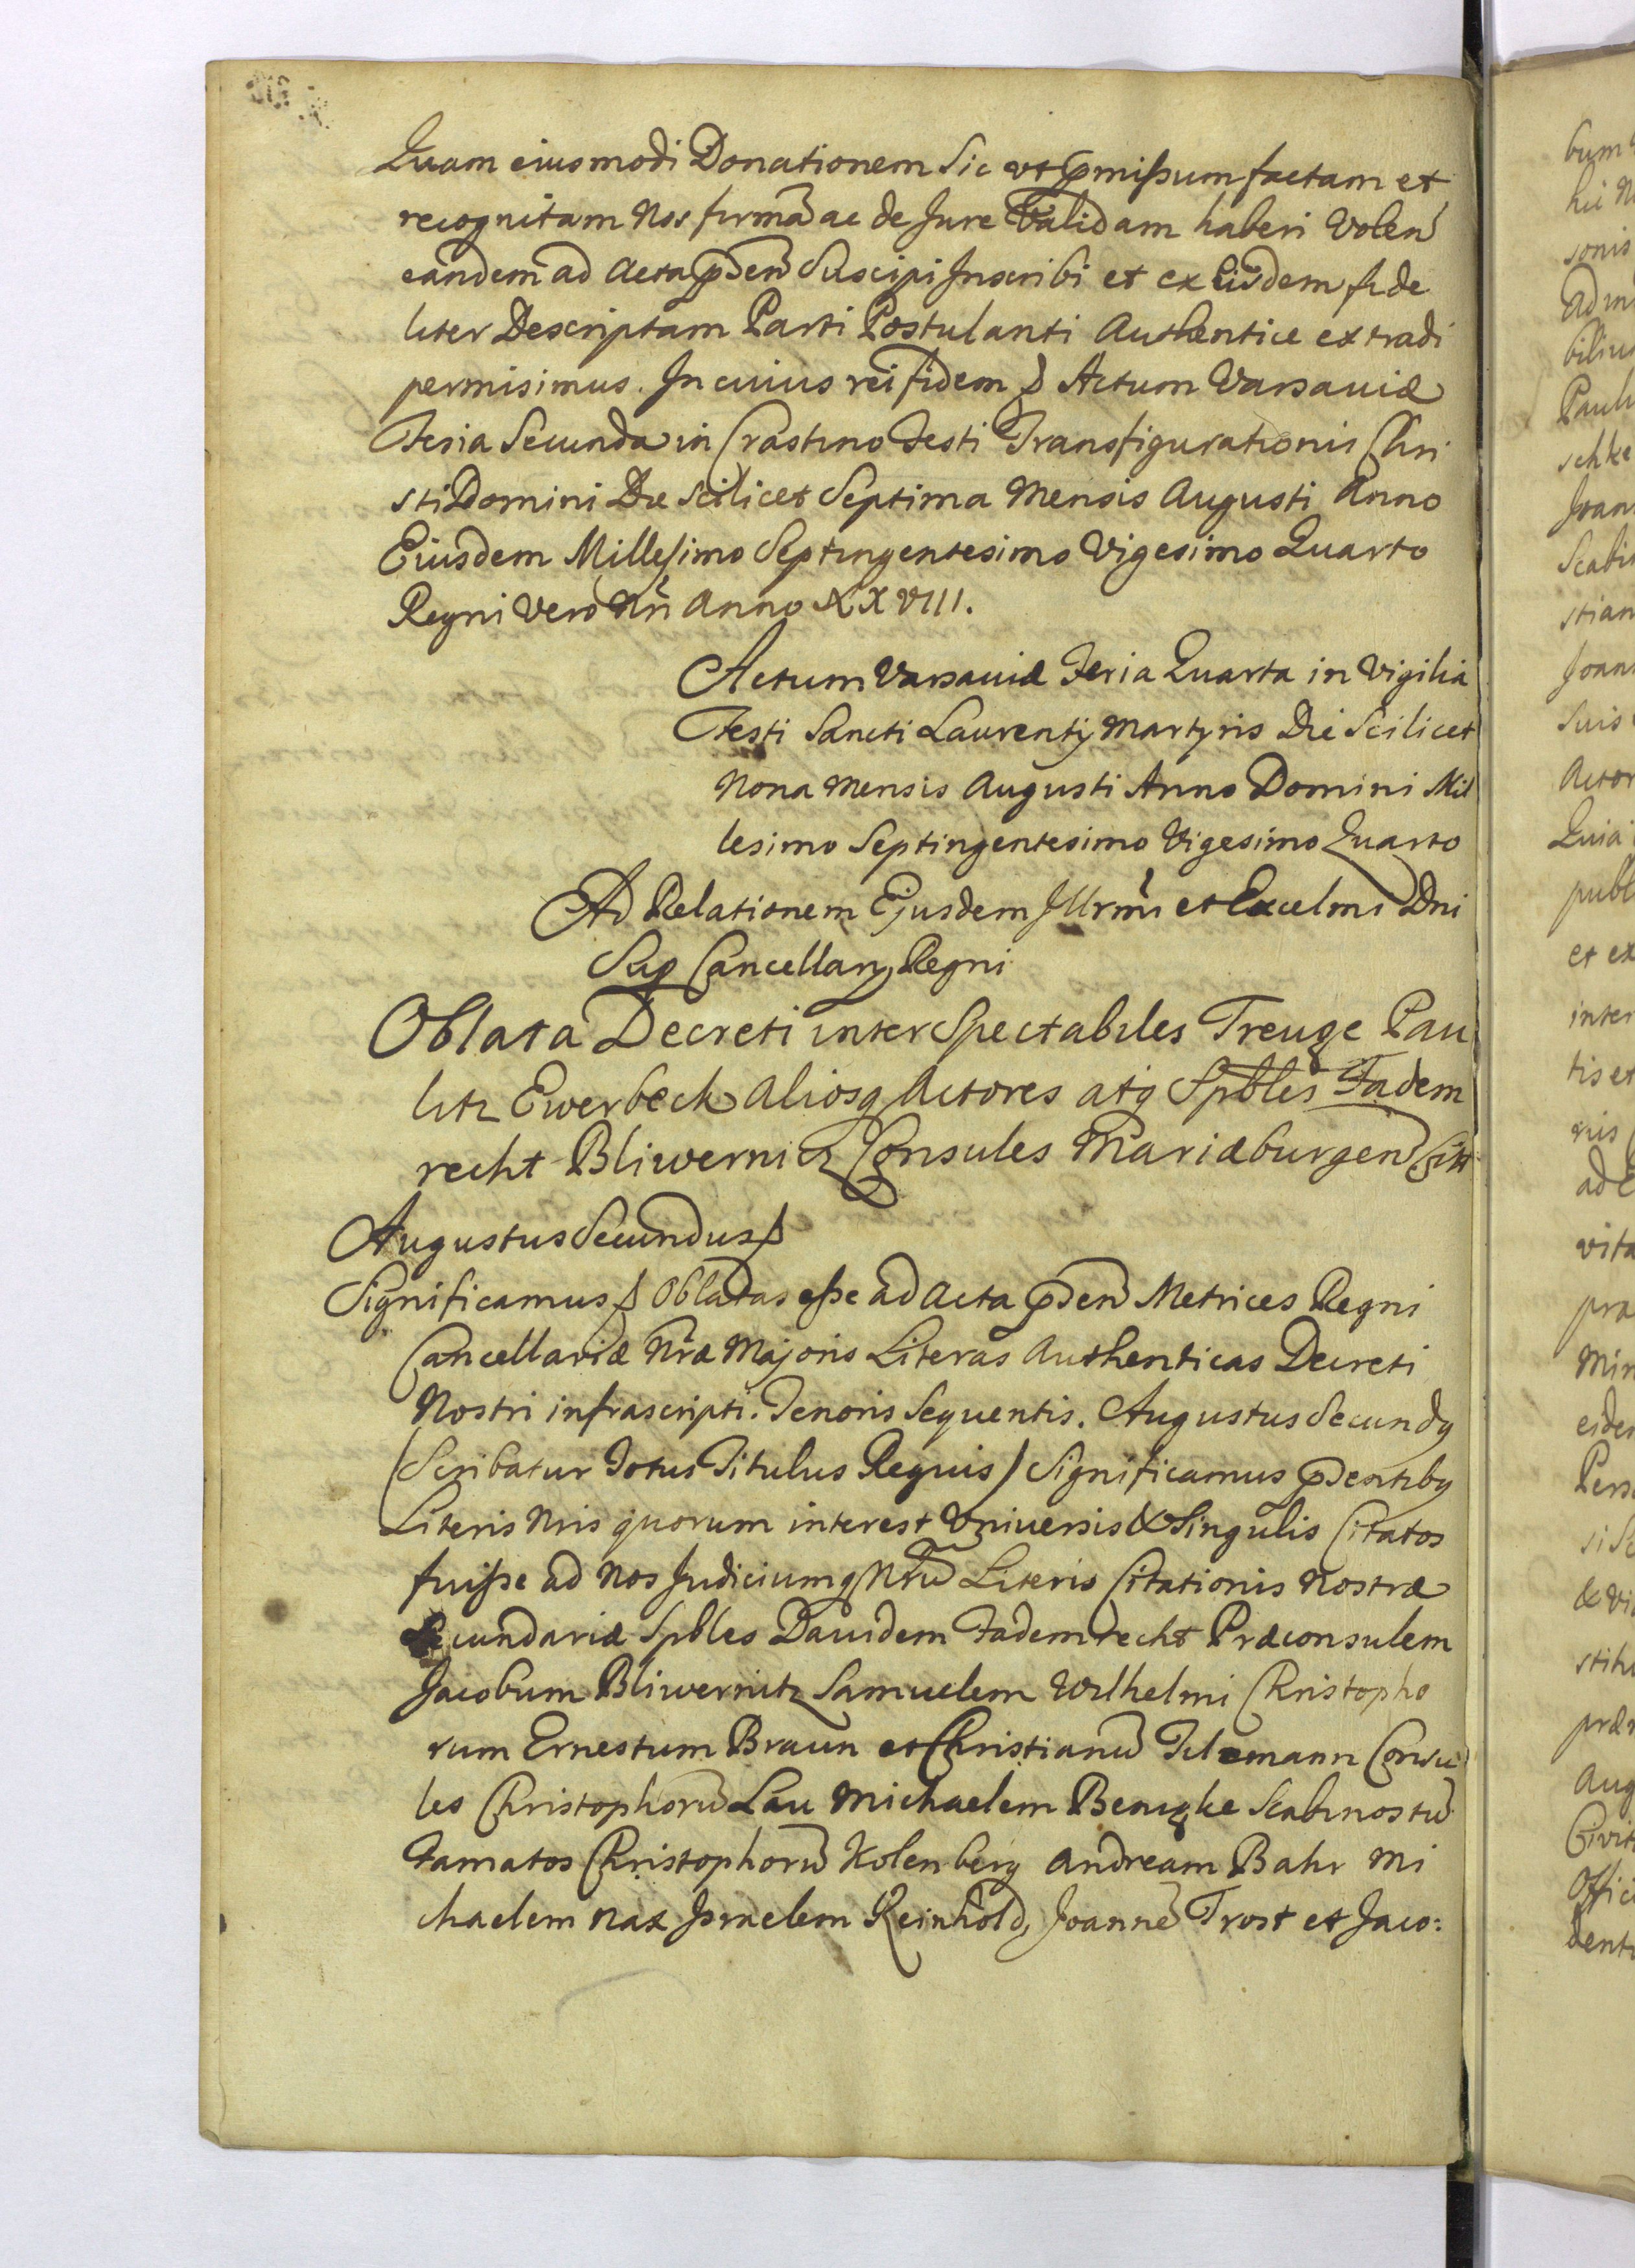 Quam eiusmodi Donationem Sic vt p̄missum factam et
recognitam Nos firmā ac de Jure Validam haberi Volen̄
eandem ad Acta p̄sen̄ Suscipi Inscribi et ex Eisdem fide
liter Descriptam Parti Postulanti Authentice extradi
permisimus. In cuius rei fidem Actum Varsaviæ
Feria Secunda in Crastino Festi Transfigurationis Chri
sti Domini Die scilicet Septima Mensis Augusti Anno
Eiusdem Millesimo Septingentesimo Vigesimo Quarto
Regni Vero Nr̄i Anno XXVIII.
Actum Varsaviæ Feria Quarta in Vigilia
Festi Sancti Laurentij Martyris Die Scilicet
Nona Mensis Augusti Anno Domini Mil
lesimo Septingentesimo Vigesimo Quarto
Ad Relationem Ejusdem Illrm̄i et Excelmi Dni
Sup Cancellarij Regni
Oblata Decreti inter Spectabiles Treuge Pau
litz Ewerbeck Aliosq Actores atq Spbles Fadem
recht Bliwernitz Consules Mariæburgen̄ Citt
Augustus Secundus
Significamus Oblatas esse ad Acta p̄sen̄ Metrices Regni
Cancellariæ Nr̄æ Majoris Literas Authenticas Decreti
Nostri infrascripti. Tenoris Sequentis. Augustus Secundq
(Scribatur Totus Titulus Regius) Significamus p̄sentibq
Literis Nris quorum interest Vniversis & Singulis Citatos
fuisse ad Nos Judiciumq Nrū Literis Citationis Nostræ
Secundariæ Spbles Davidem Fademrecht Præconsulem
Jacobum Bliwernitz Samuelem Wilhelmi Christopho
rum Ernestum Braun et Christianū Telemann Consu
les Christophorū Lau Michaelem Beniqke Scabinos tū
Famatos Christophorū Kolenberg Andream Bahr Mi
chaelem Nax Israelem Reinhold, Joannē Trost et Jaco: